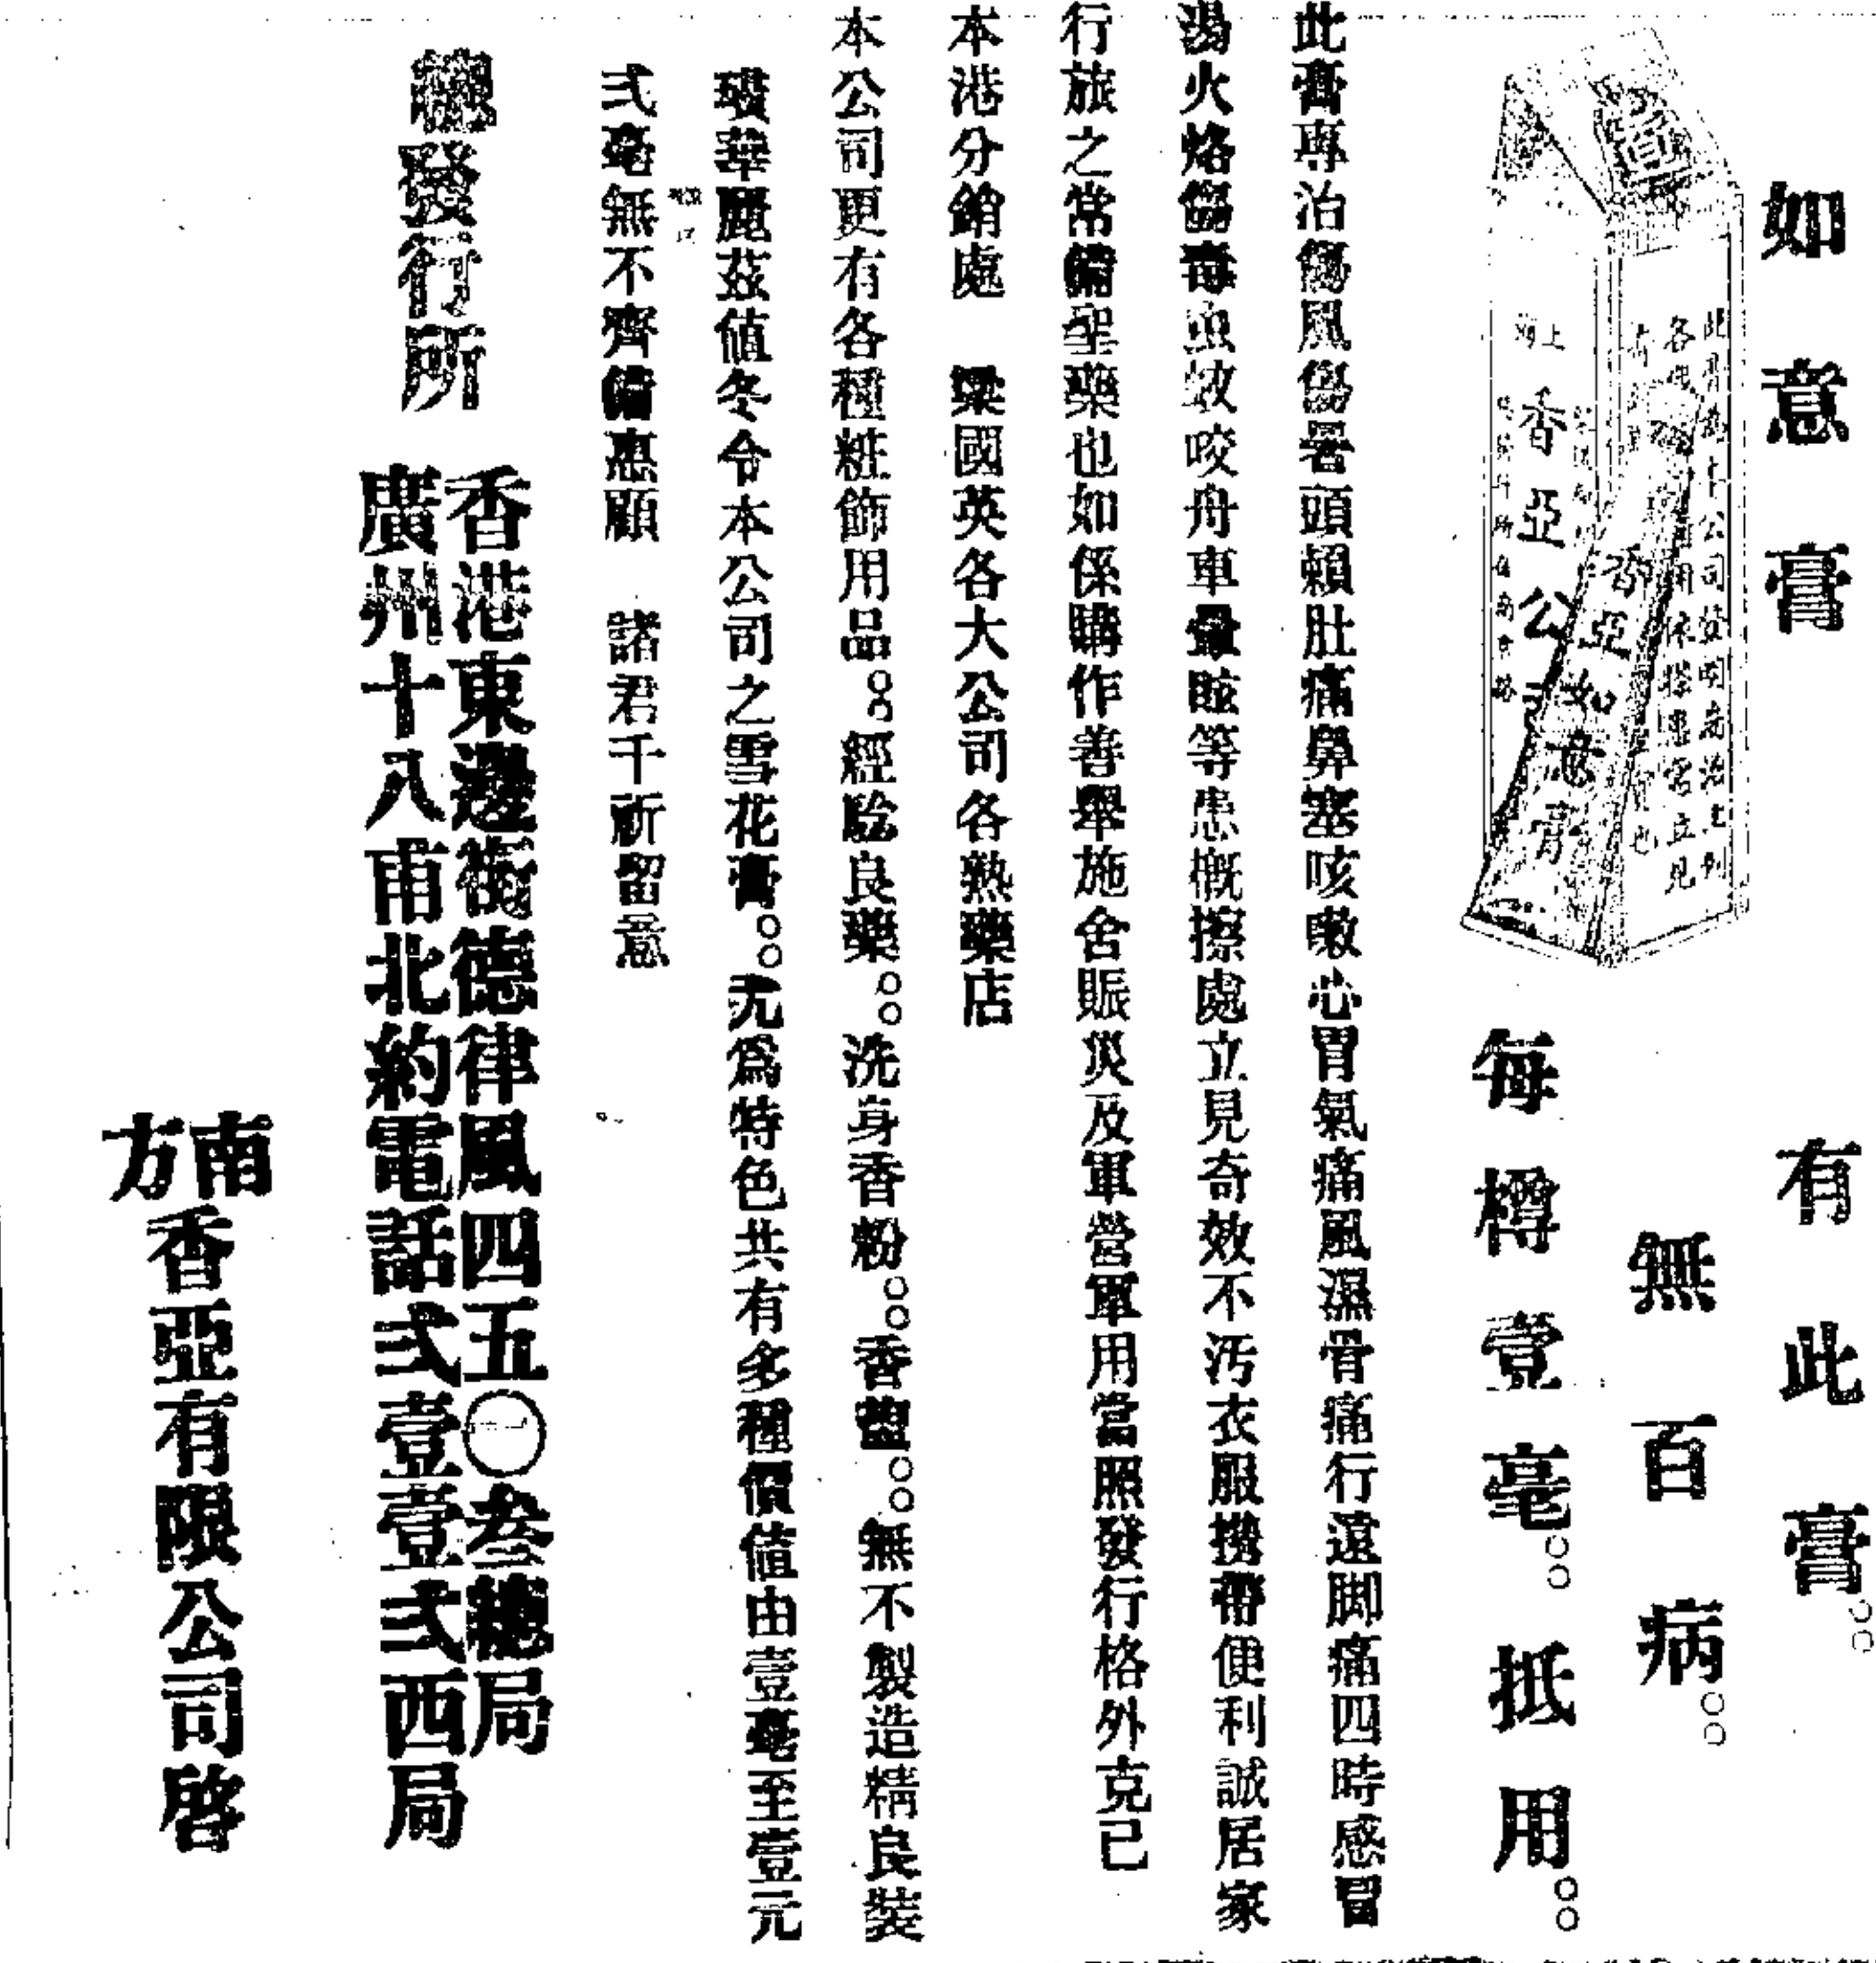 如意膏
有此膏。。
無百病。。
每樽壹毫。。抵用。。
此膏專治傷風傷暑頭賴肚痛鼻塞咳嗽心胃氣痛風濕骨痛行遠脚痛四時感冒
湯火烙傷毒虫蚊咬舟車暈眩等患概擦處立見奇效不汚衣服携帶便利誠居家
行旅之常備聖藥也如係購作善舉施舍賑災及軍營軍用當照發行格外克己
本港分銷處 梁國英各大公司各熟藥店
本公司更有各種粧飾用品。。經驗良藥。。洗身香粉。。香鹽。。無不製造精良裝
璜華麗茲值冬令本公司之雪花膏。。尤為特色共有多種價值由壹毫至壹元
弍毫無不齊備惠顧 諸君千祈留意
總發行所
香港東邊街德律風四五〇叁總局
廣州十八甫北約電話弍壹壹弍西局
南方香亞有限公司啓
上海 香亞公司
香亞如意膏